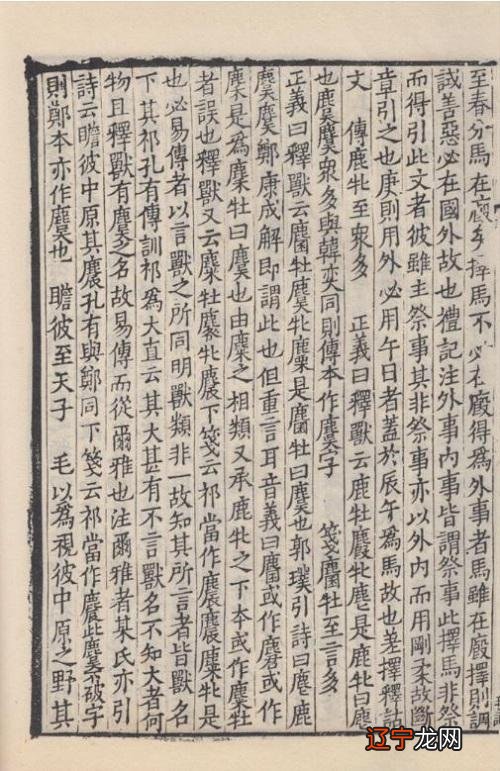 至春分馬在廄矣擇馬不必在廄得為外事者馬雖在廄擇則調
試善惡必在國外故也禮記注外事內事皆謂祭事此擇馬非祭
而得引此文者彼雖主祭事其非祭事亦以外內而用剛柔故斷
章引之也庚則用外必用午日者蓋於辰午為馬故也差擇釋詁
文　傳鹿牝至衆多　正義曰釋獸云鹿牡麚牝麀是鹿牝曰麀
也麌麌衆多與韓奕同則傳本作麌字　箋麕牡至言多
正義曰釋獸云麕牡麌牝麜是麕牡曰麌也郭璞引詩曰麀鹿
麌麌鄭康成解即謂此也但重言耳音義曰麕或作麏或作
麇是為麇牡曰麌也由麇之相類又承鹿牝之下本或作麋牡
者誤也釋獸又云麋牡麔牝麎下箋云祁當作麎麎麋牝是
也必易傳者以言獸之所同明獸類非一故知其所言者皆獸名
下其祁孔有傳訓祁為大直云其大甚有不言獸名不知大者何
物且釋獸有麎之名故易傳而從爾雅也注爾雅者某氏亦引
詩云瞻彼中原其麎孔有與鄭同下箋云祁當作麎此麌不破字
則鄭本亦作麌也　瞻彼至天子　毛以為視彼中原之野其
辽宁龙网